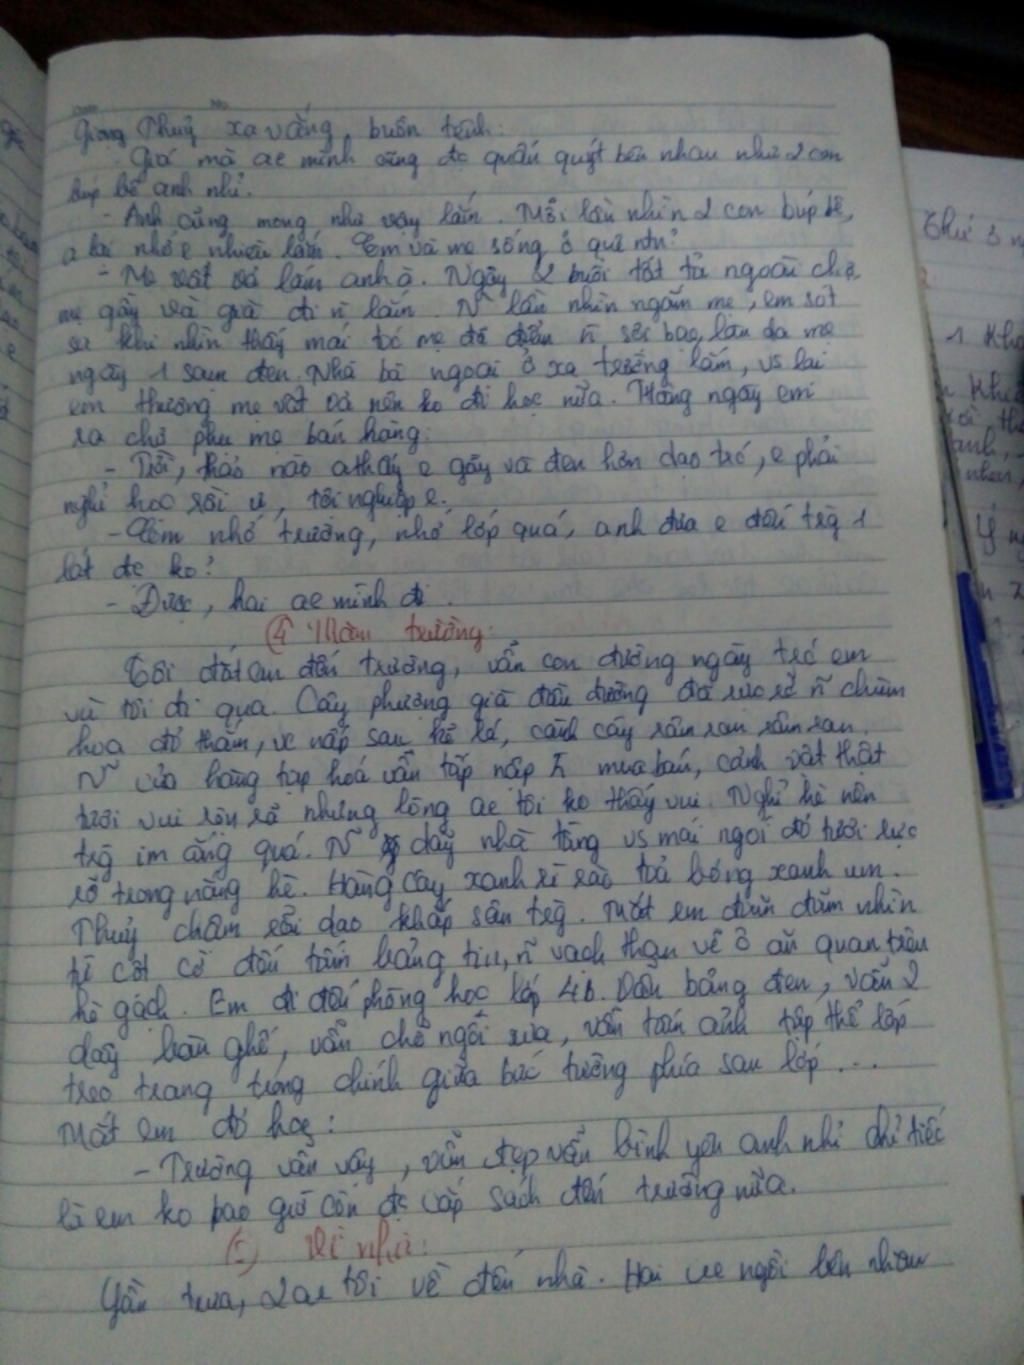 Giọng Thuỷ xa vắng, buồn tênh:
- Giá mà ae mình cũng đc quấn quýt bên nhau như 2 con
búp bê anh nhỉ.
- Anh cũng mong như vậy lắm. Mỗi lần nhìn 2 con búp bê,
a lại nhớ e nhiều lắm. Em và mẹ sống ở quê ntn?
- Mẹ vất vả lắm anh ạ. Ngày 2 buổi tất tả ngoài chợ,
mẹ gầy và già đi n lắm. N~ lần nhìn ngắm mẹ, em xót
xa khi nhìn thấy mái tóc mẹ đã điểm n~ sợi bạc, làn da mẹ
ngày 1 sạm đen. Nhà bà ngoại ở xa trường lắm, vs lại
em thương mẹ vất vả nên ko đi học nữa. Hàng ngày em
ra chợ phụ mẹ bán hàng.
- Trời, thảo nào a thấy e gầy và đen hơn dạo trc, e phải
nghỉ học rồi ư, tội nghiệp e.
- Em nhớ trường, nhớ lớp quá, anh đưa e đến trg 1
lát đc ko?
- Được, hai ae mình đi.
④ Thăm trường:
Tôi dắt em đến trường, vẫn con đường ngày trc em
và tôi đi qua. Cây phượng già đầu đường đã rực rỡ n~ chùm
hoa đỏ thắm, ve nấp sau kẽ lá, cành cây râm ran râm ran.
N~ cửa hàng tạp hoá vẫn tấp nập mua bán, cảnh vật thật
tươi vui rộn rã nhưng lòng ae tôi ko thấy vui. Nghỉ hè nên
trg im ắng quá. N~ dãy nhà tầng vs mái ngói đỏ tươi rực
rỡ trong nắng hè. Hàng cây xanh rì rào toả bóng xanh um.
Thuỷ chậm rãi dạo khắp sân trg. Mắt em đăm đăm nhìn
từ cột cờ đến tấm bảng tin, n~ vạch than vẽ ô ăn quan trên
hè gạch. Em đi đến phòng học lớp 4b. Vẫn bảng đen, vẫn 2
dãy bàn ghế, vẫn chỗ ngồi xưa, vẫn tấm ảnh tập thể lớp
treo trang trọng chính giữa bức tường phía sau lớp...
Mắt em đỏ hoe:
- Trường vẫn vậy, vẫn đẹp vẫn bình yên anh nhỉ chỉ tiếc
là em ko bao giờ còn đc cắp sách đến trường nữa.
⑤ Về nhà:
Gần trưa, 2 ae tôi về đến nhà. Hai ae ngồi bên nhau